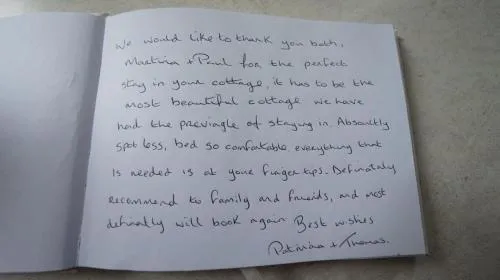 We would like to thank you both,
Martina + Paul for the perfect
stay in your cottage, it has to be the
most beautiful cottage we have
had the previngle of staying in. Absoutly
spotless, bed so comfortable, everything that
is needed is at your finger tips. Definataly
recommend to family and friends, and most
definatly will book again Best wishes
Patricia + Thomas.